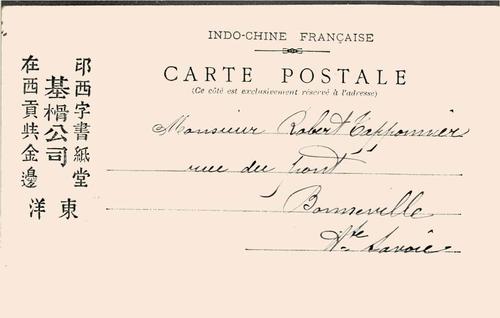 INDO-CHINE FRANÇAISE
CARTE POSTALE
(Ce côté est exclusivement réservé à l'adresse)
印西字書紙堂
公司
在西貢㘯金邊
東洋
Monsieur Robert Tapponnier
rue du Pont
Bonneville
Hte Savoie